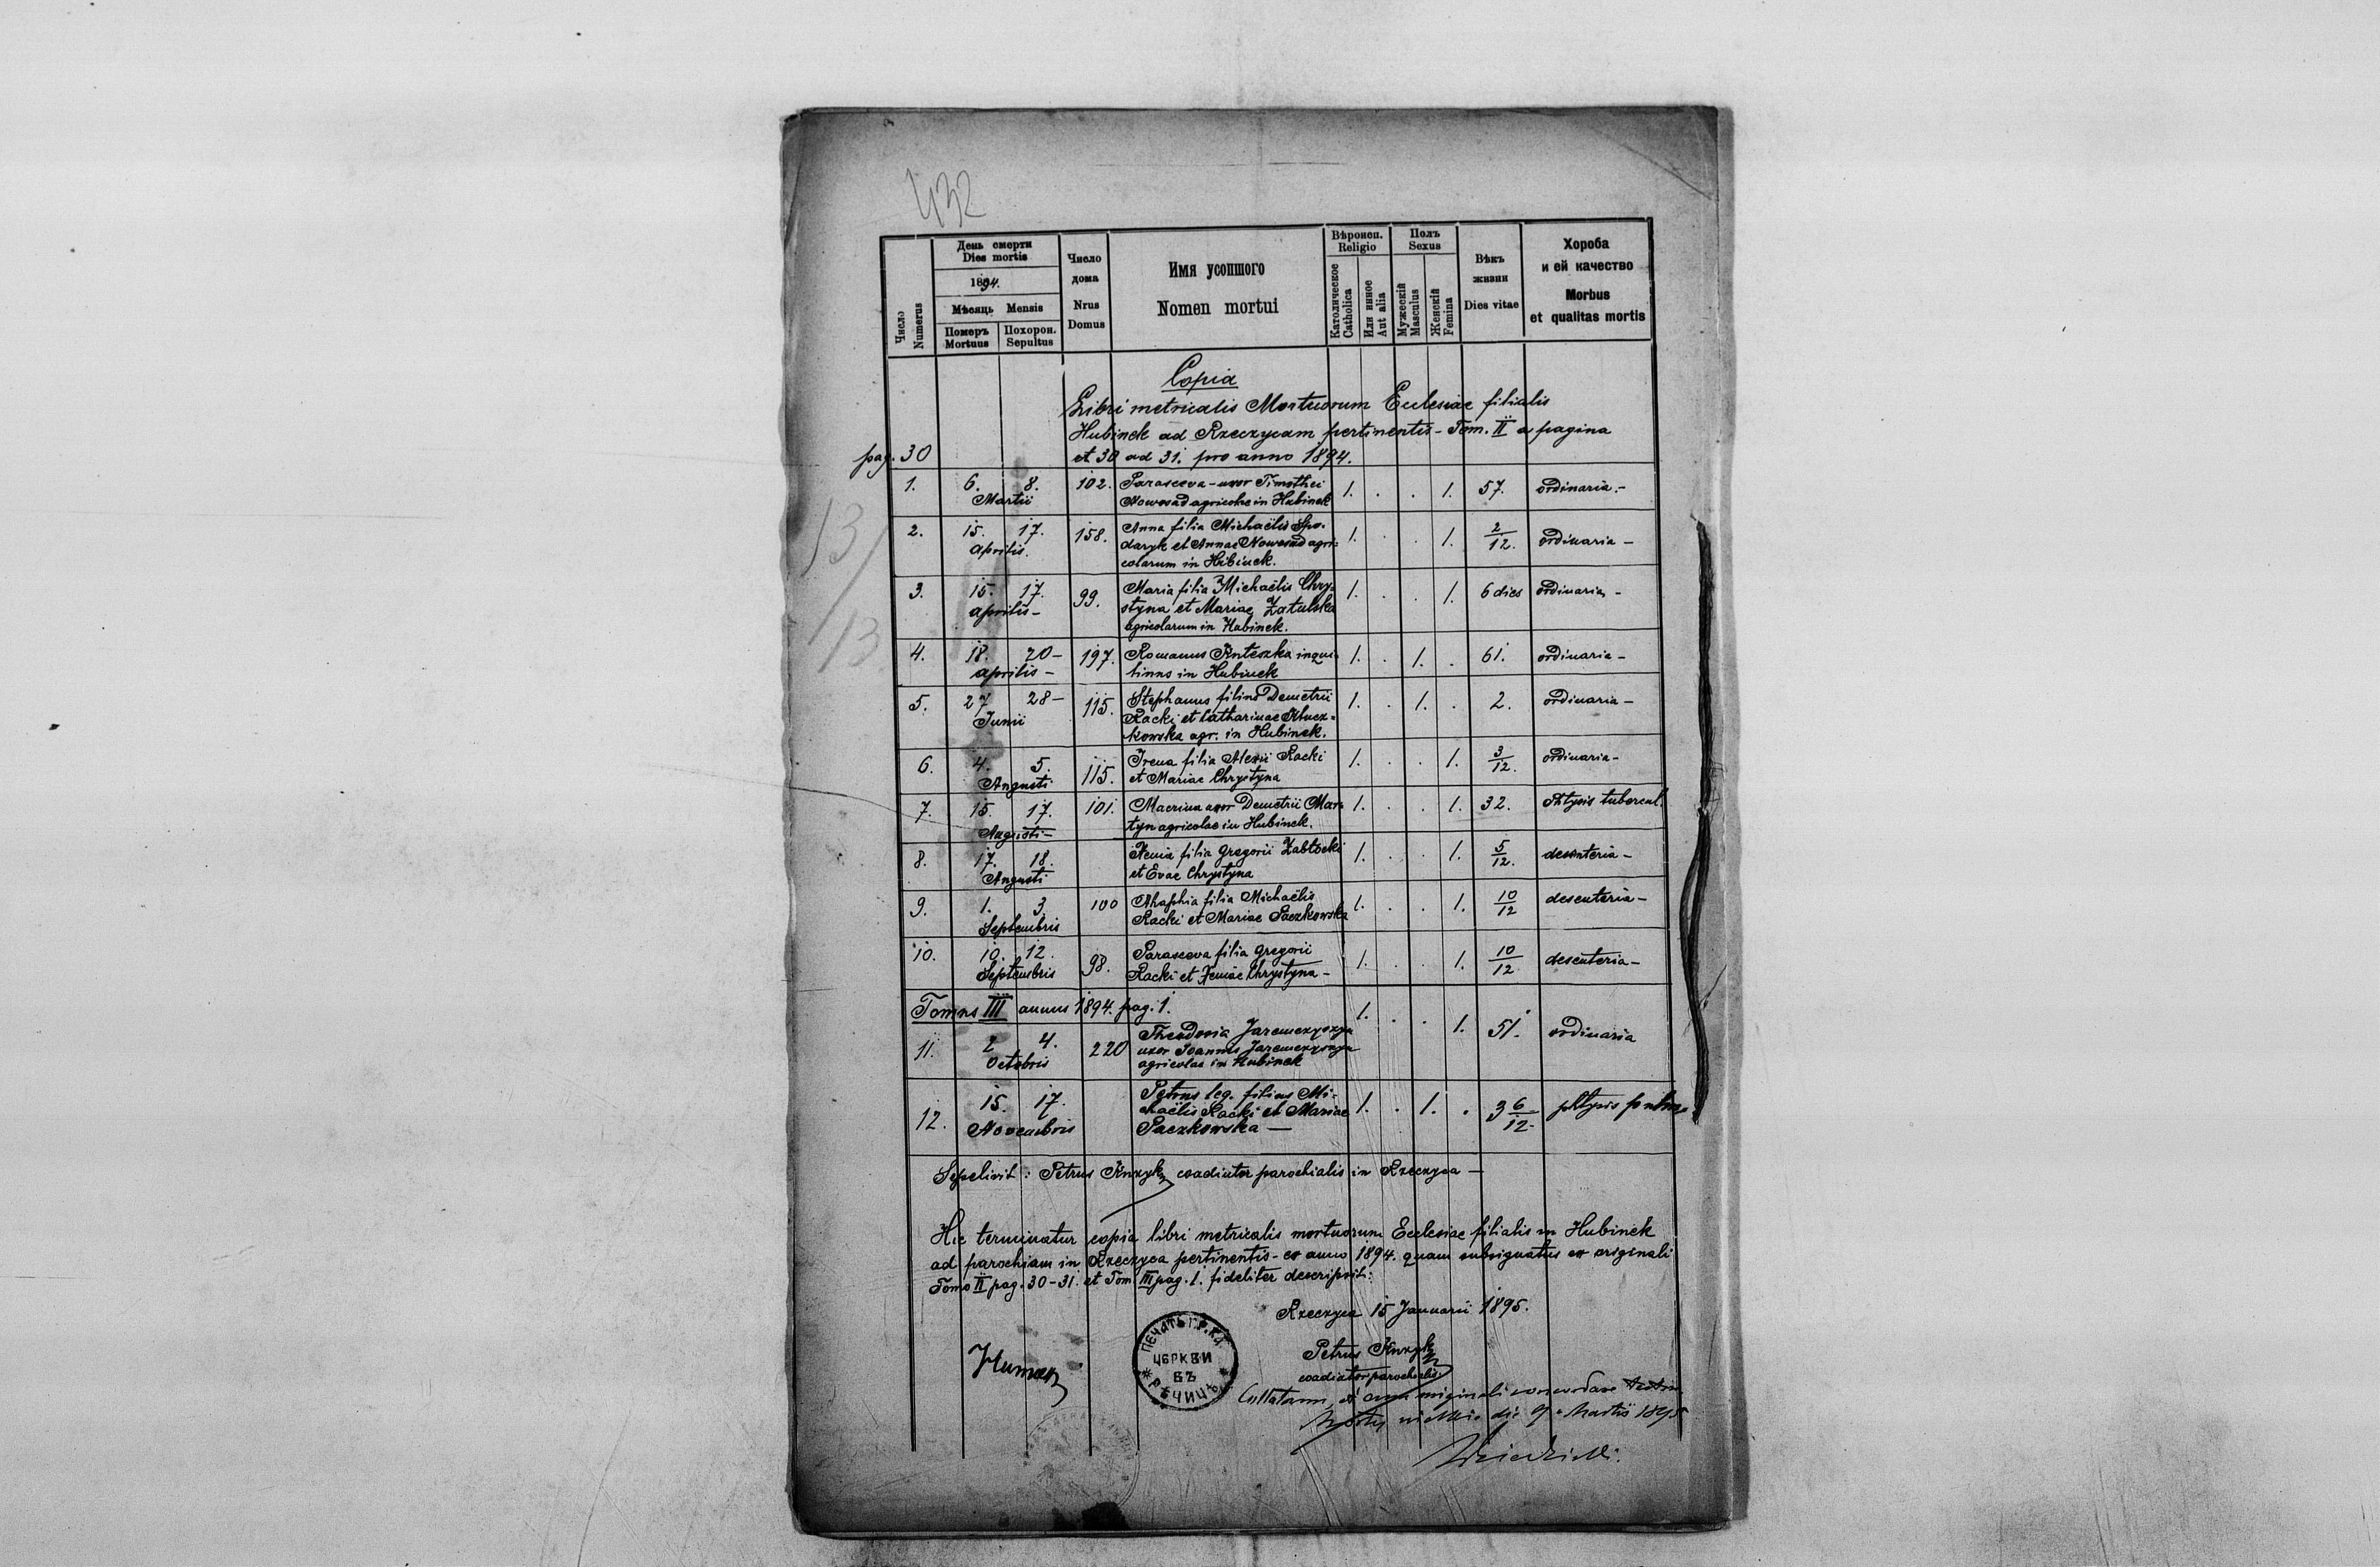 432
Число Numerus
День смерти
Dies mortis
1894.
Мѣсяць Mensis
Померъ Mortuus
Похорон. Sepultus
Число дома
Nrus Domus
Имя усопшого
Nomen mortui
Вѣроисп.
Religio
Католическое Catholica
Или инное Aut alia
Полъ
Sexus
Мужескій Masculus
Женскій Femina
Вѣкъ жизни
Dies vitae
Хороба
и ей качество
Morbus
et qualitas mortis
Copia
Libri metricalis Mortuorum Ecclesiae filialis
Hubinek ad Rzeczycam pertinentis - Tom. II a pagina
pag. 30 et 30 ad 31. pro anno 1894.
1. 6. 8. 102. Parasceva - uxor Timothei 1. . . 1. 57. ordinaria.-
Martii Nowosad agricolae in Hubinek
2. 15. 17. 158. Anna filia Michaëlis Spo- 1. . . 1. 2/12. ordinaria -
Aprilis. daryk et Annae Nowosad agri-
colarum in Hubinek.
3. 15. 17. 99. Maria filia Michaëlis Chry- 1. . . 1. 6 dies ordinaria -
Aprilis - styna et Mariae Zatulska
agricolarum in Hubinek.
4. 18. 20- 197. Romanus inqui- 1. . 1. . 61. ordinaria -
Aprilis - linus in Hubinek
5. 27 28- 115. Stephanus filius Demetrii 1. . 1. . 2. ordinaria -
Junii Racki et Catharinae
kowska agr. in Hubinek.
6. 4. 5. 115. Irena filia Alexii Racki 1. . . 1. 3/12. ordinaria -
Augusti et Mariae Chrystyna
7. 15. 17. 101. Macrina uxor Demetrii Mar- 1. . . 1. 32. Phtysis tubercul.
Augusti - tyn agricolae in Hubinek.
8. 17. 18. Xenia filia Gregorii Zabłocki 1. . . 1. 5/12. desenteria -
Augusti et Evae Chrystyna
9. 1. 3. 100 Ahaphia filia Michaëlis 1. . . 1. 10/12 desenteria -
Septembris Racki et Mariae Paczkowska
10. 10. 12. 98. Parasceva filia Gregorii 1. . . 1. 10/12 desenteria -
Septembris Racki et Xeniae Chrystyna -
Tomus III annus 1894. pag. 1.
11. 2 4. 220 Theodosia 1. . . 1. 51. ordinaria
Octobris uxor Joannis
agricolae in Hubinek
12. 15. 17. Petrus leg. filius Mi- 1. . 1. . 3 6/12 phtysis pulm.
Novembris chaëlis Racki et Mariae
Paczkowska -
Sepelivit: Petrus coadiutor parochialis in Rzeczyca -
Hic terminatur copia libri metricalis mortuorum Ecclesiae filialis in Hubinek
ad parochiam in Rzeczyca pertinentis - ex anno 1894. quam subsignatus ex originali
Tomo II pag. 30-31. et Tom III pag. 1. fideliter descripsit:
Rzeczyca 15 Januarii 1895.
Petrus
coadiutor parochialis
ПЕЧАТЬ ГР. КА.
ЦЕРКВИ
ВЪ
РѢЧИЦѢ
originali
die 9. Martii 1895